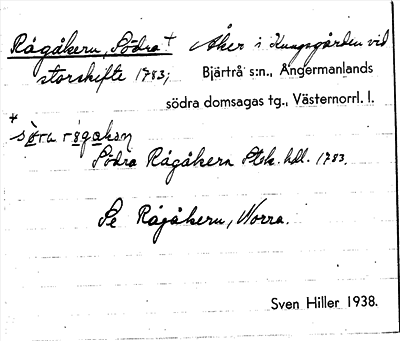 Rågåkern, Södra + Åker i Kungsgården vid
storskifte 1783; Bjärtrå s:n., Ångermanlands
södra domsagas tg., Västernorrl. l.
+
sö̀ra rågakan
Södra Rågåkern Stsk. hdl. 1783.
Se Rågåkern, Norra.
Sven Hiller 1938.